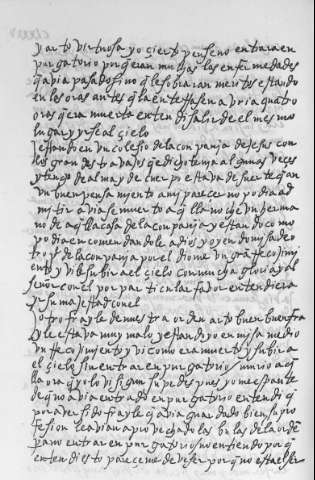 y arto virtuosa yo çierto pense no entrara en
purgatorio porque eran muchas las enfermedades
que avia pasado sino que le sobraran meritos estando
en las oras antes que la enterrasen avria quatro
oras que era muerta entendi salir de el mesmo
lugar y yrse al çielo
estando en un colesio de la conpañia de jesus con
los grandes travajos que e dicho tenia algunas veçes
y tengo de alma y de cuerpo estava de suerte que aun
un buen pensamiento a mi pareçer no podia ad
mitir aviase muerto aquella noche un herma
no de aquella casa de la conpañia y estando como
podia encomendandole a dios y oyendo misa de o
tro pe de la conpañia por el diome un gran recojimi
ento y vile subir a el çielo con mucha gloria y al
señor con el por particular favor entendi era
yr su majestad con el
otro frayle de nuestra orden arto buen frayle
estava muy malo y estando yo en misa me dio
un recojimiento y vi como era muerto y subir a
el çielo sin entrar en purgatorio murio aque
lla ora que yo lo vi segun supe despues yo me espante
de que no avia entrado en purgatorio entendi que
por aver sido frayle que avia guardado bien su pro
fesion le avian aprovechado las bulas de la orden
para no entrar en purgatorio no entiendo por que
entendi esto pareçeme deve ser porque no esta el ser